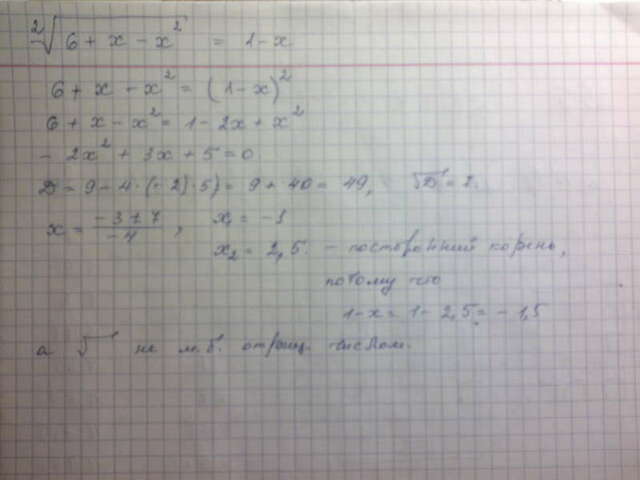 ²√(6 + x − x²) = 1 − x
6 + x − x² = (1 − x)²
6 + x − x² = 1 − 2x + x²
− 2x² + 3x + 5 = 0
D = 9 − 4·(−2)·5) = 9 + 40 = 49, √D = 7.
x = (−3 ± 7)/−4, x₁ = −1
x₂ = 2,5. − посторонний корень,
потому что
1−x = 1 − 2,5 = −1,5
а √ не м.б. отриц. числом.